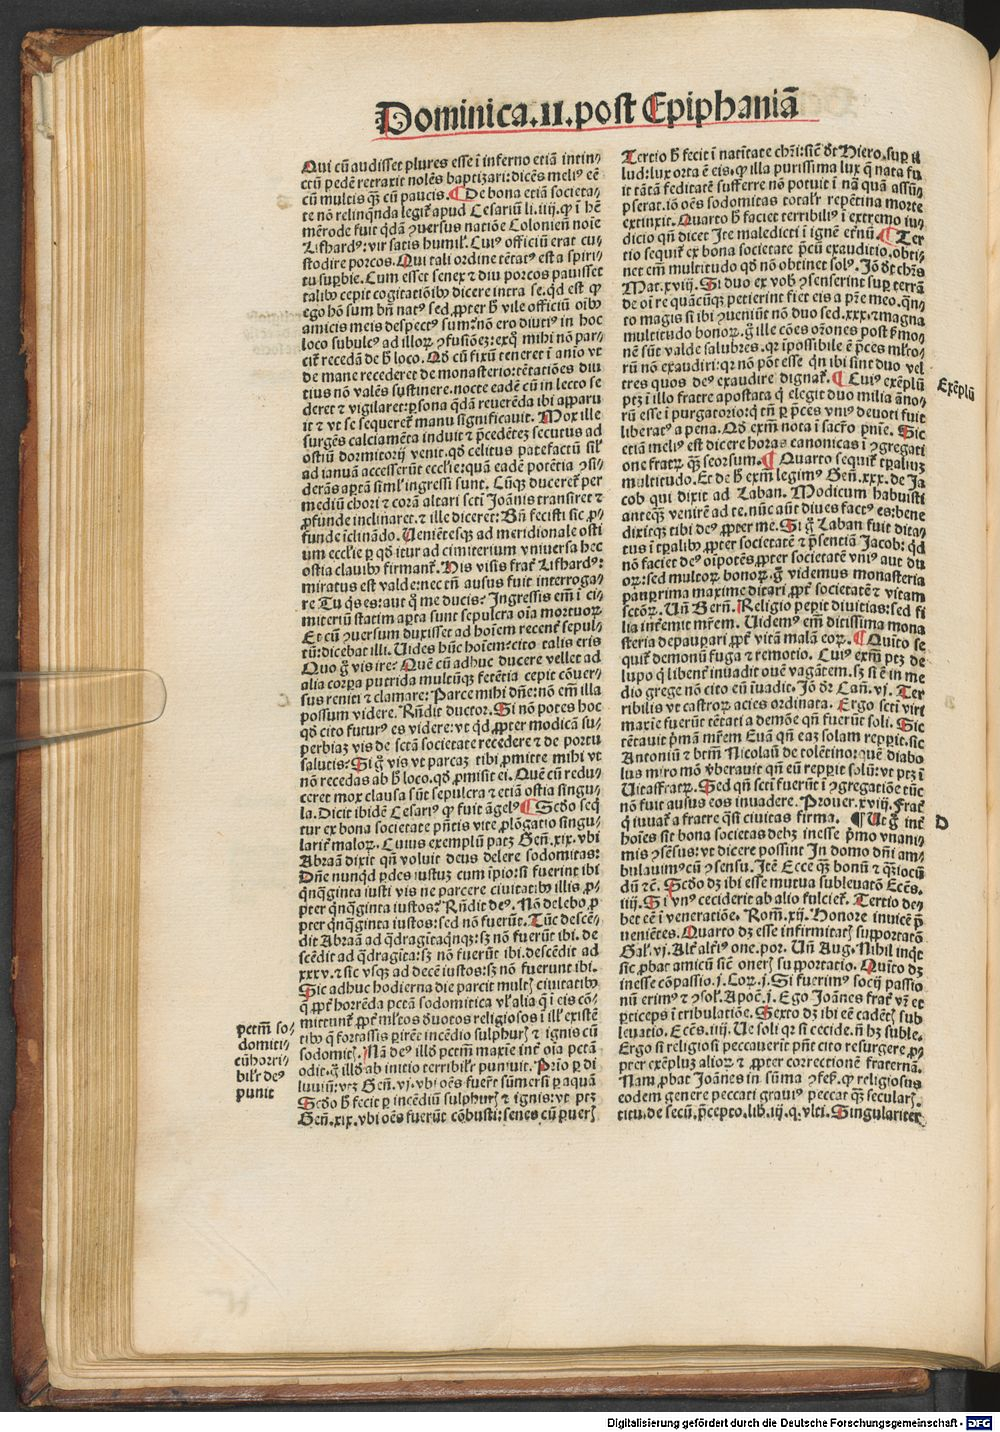 Dominica.II.post Epiphaniā
Qui cū audisset plures esse ī inferno etiā intin⸗
ctū pedē retraxit nolēs baptizari: dicēs meliꝰ eē
cū multis qꝫ cū paucis. ¶ De bona etiā societa⸗
te nō relinqnda legit̄ apud Cesariū li.iiij. ꝙ ī hē
mērode fuit qdā ꝯuersus natiōe Coloniēn noīe
Lifhardꝰ: vir satis humil. Cuiꝰ officiū erat cu⸗
stodire porcos. Qui tali ordine tētatꝰ est a spiri⸗
tu supbie. Cum esset senex ⁊ diu porcos pauisset
talibꝰ cepit cogitatiōibꝰ dicere intra se. qd est ꝙ
ego hō sum bn̄ natꝰ sed ꝓpter h̄ vile officiū oībꝰ
amicis meis despectꝰ sum: nō ero diutiꝰ in hoc
loco subulcꝰ ad illoꝝ ꝯfusiōeꝫ: exq̄ mihi nō par⸗
cit̄ recedā de h̄ loco. Qd cū fixū teneret ī anīo vt
de mane recederet de monasterio: tētatiōes diu
tius nō valēs sustinere. nocte eadē cū in lecto se
deret ⁊ vigilaret: psona qdā reuerēda ibi apparu
it ⁊ vt se sequeret̄ manu significauit. Mox ille
surgēs calciamēta induit ⁊ p̄cedēteꝫ secutus ad
ostiū dormitorij venit. qd celitus patefactū sil
ad ianuā accesserūt ecclie: quā eadē potētia ꝯsi⸗
derās aptā siml ingressi sunt. Cūqꝫ duceret̄ per
mediū chori ⁊ corā altari scti Joānis transiret ⁊
ꝓfunde inclinaret. ⁊ ille diceret: Bn̄ fecisti sic ꝓ⸗
funde īclinādo. Ueniētesqꝫ ad meridionale osti
um ecclie p qd itur ad cimiterium vniuersa hec
ostia clauibꝰ firmant̄. His visis frat̄ Lifhardꝰ:
miratus est valde: nec tn̄ ausus fuit interroga⸗
re Tu q̄s es: aut q̄ me ducis? Ingressis em̄ ī ci⸗
miteriū statim apta sunt sepulcra oīa mortuoꝝ
Et cū ꝯuersum duxisset ad hoīem recent̄ sepul⸗
tū: dicebat illi. Uides hūc hoīem: cito talis eris
Quo ḡ vis ire? Quē cū adhuc ducere vellet ad
alia corpa putrida multūqꝫ fetētia cepit cōuer⸗
sus reniti ⁊ clamare: Parce mihi dn̄e: nō em̄ illa
possum videre. Rn̄dit ductor. Si nō potes hoc
qd cito futurꝰ es videre: vt qd ꝓpter modicā su⸗
perbiaꝫ vis de sctā societate recedere ⁊ de portu
salutis? Si ḡ vis vt parcaꝫ tibi ꝓmitte mihi vt
nō recedas ab h̄ loco. qd ꝓmisit ei. Quē cū redu⸗
ceret mox clausa sūt sepulcra ⁊ etiā ostia sīngu⸗
la. Dicit ibidē Cesariꝰ ꝙ fuit āgelꝰ ¶ Scdo seq̄
tur ex bona societate pn̄tis vite ꝓlōgatio singu⸗
larit̄ maloꝝ. Cuius exemplū patꝫ Gen̄.xix. vbi
Abraā dixit qn̄ voluit deus delere sodomitas:
Dn̄e nunqd pdes iustuꝫ cum īpio: si fuerint ibi
qnq̄ginta iusti vis ne parcere ciuitatibꝰ illis ꝓ⸗
pter qnq̄ginta iustos? Rn̄dit deꝰ. Nō delebo ꝓ
pter qnq̄ginta iustos: sed nō fuerūt. Tūc descē⸗
dit Abraā ad q̄dragītaqnqꝫ: sꝫ nō fuerūt ibi. de
scēdit ad q̄dragita: sꝫ nō fuerūt ibi. descēdit ad
xxxv. ⁊ sic vsqꝫ ad decē iustos: sꝫ nō fuerunt ibi.
Sic adhuc hodierna die parcit multꝭ ciuitatibꝰ
q̄ ꝓpt̄ horrēda pctā sodomitica vl alia q̄ ī eis cō⸗
mittunt̄ ꝓpt̄ ml̄tos d̄uotos religiosos ī ill existē
tibꝰ q̄ fortassis pirēt incēdio sulphurꝭ ⁊ ignis cū
sodomitꝭ. Nā deꝰ illd pctm̄ maxīe int̄ oīa pctā
odit. q̄ illd ab initio terribilr puniuit. Prīo p di
luuiū: vꝫ Gen̄.vj. vbi oēs fuer̄t sūmersi p aquā
Scdo h̄ fecit p incēdiū sulphurꝭ ⁊ ignis: vt ptꝫ
Gen̄.xix. vbi oēs fuerūt cōbusti: senes cū puerꝭ
pctm̄ so⸗
domiti⸗
cū horri⸗
bilr deꝰ
punit
Tertio h̄ fecit ī natītate chri: sic dt Hiero. sup il
lud: lux orta ē eis. ꝙ illa purissima lux q̄ nata fu
it tātā feditatē sufferre nō potuit ī nā quā assū⸗
pserat. iō oēs sodomitas totalr repētina morte
extinxit. Quarto h̄ faciet terribiliꝰ ī extremo iu⸗
dicio qn̄ dicet Ite maledicti ī ignē et̄nū. ¶ Ter
tio sequit̄ ex bona societate p̄cū exauditio. obti⸗
net em̄ multitudo qd nō obtinet solꝰ. Jō dt chrs
Mat.xviij. Si duo ex vob ꝯsenserint sup terrā
de oī re quācūqꝫ petierint fiet eis a pr̄e meo. qn̄⸗
to magis si ibi ꝯueniūt nō duo sed .xxx. ⁊ magna
multitudo bonoꝝ. ḡ ille cōes orōnes post ẜmo⸗
nē sūt valde salubres. qꝛ ipossibile ē p̄ces ml̄to⸗
rū nō exaudiri: qꝛ nō pōt esse qn̄ ibi sint duo vel
tres quos deꝰ exaudire dignat̄. ¶ Cuiꝰ exēplū
ptꝫ ī illo fratre apostata q̄ elegit duo milia āno⸗
rū esse ī purgatorio: q̄ tn̄ p p̄ces vniꝰ deuoti fuit
liberatꝰ a pena. Qd exm̄ nota ī sacr̄o pnīe. Sic
etiā meliꝰ est dicere horas canonicas ī ꝯgregati
one fratꝝ qꝫ seorsum. ¶ Quarto sequit̄ tpaliuꝫ
multitudo. Et de h̄ exm̄ legimꝰ Gen̄.xxx. de Ja
cob qui dixit ad Laban. Modicum habuisti
anteqꝫ venirē ad te. nūc aūt diues factꝰ es: bene
dixitqꝫ tibi deꝰ ꝓpter me. Si ḡ Laban fuit dita⸗
tus ī tpalibꝰ ꝓpter societatē ⁊ p̄sentiā Jacob: qd
nō faciet deꝰ oīpotēs ꝓpter societatē vniꝰ aut du
oꝝ: sed multoꝝ bonoꝝ. ḡ videmus monasteria
paupima maxime ditari ꝓpt̄ societatē ⁊ vitam
sctōꝝ. Un̄ Bern̄. Religio pepit diuitias: sed fi
lia intēmit mr̄em. Uidemꝰ em̄ ditissima mona
steria depaupari ꝓpt̄ vitā malā eoꝝ. ¶ Quīto se
quit̄ demonū fuga ⁊ remotio. Cuiꝰ exm̄ ptꝫ de
lupo q̄ libent̄ inuadit ouē vagātem. sꝫ si ē in me
dio grege nō cito eū īuadit. Jō dr̄ Can̄.vj. Ter
ribilis vt castroꝝ acies ordinata. Ergo scti viri
maxīe fuerūt tētati a demōe qn̄ fuerūt soli. Sic
tētauit p̄mā mr̄em Euā qn̄ eaꝫ solam reppit. sic
Antoniū ⁊ btm̄ Nicolaū de tolētino: quē diabo
lus miro mōd ṽberauit qn̄ eū reppit solū: vt ptꝫ ī
Uitaffratꝝ. Sed qn̄ scti fuerūt ī ꝯgregatiōe tūc
nō fuit ausus eos inuadere. Prouer.xviij. Frat̄
q̄ iuuat̄ a fratre q̄si ciuitas firma. ¶ Ut ḡ int̄
hoīes sit bona societas debꝫ inesse p̄mo vnani⸗
mis ꝯsēsus: vt dicere possint In domo dn̄i am⸗
bulauimꝰ cū ꝯsensu. Itē Ecce qꝫ bonū ⁊ qꝫ iocū
dū ⁊c̄. Scdo dꝫ ibi esse mutua subleuatō Eccēs.
iiij. Si vnꝰ ceciderit ab alio fulciet̄. Tertio de⸗
bet eē ī veneratiōe. Rom̄.xij. Honore inuicē p̄
neniētes. Quarto dꝫ esse infirmitatꝭ supportatō
Gal.vj. Alt̄ alt̄iꝰ one.por. Un̄ Aug. Nihil inqt
sic ꝓbat amicū sic onerꝭ supportatio. Quīto dꝫ
inesse cōpassio. j. Coꝝ.j. Si fuerimꝰ socij passio
nū erimꝰ ⁊ ꝯsol. Apoc̄.j. Ego Joānes frat̄ vr̄ et
pticeps ī tribulatiōe. Sexto dꝫ ibi eē cadētꝭ sub
leuatio. Eccēs.iiij. Ue soli qꝛ si cecide. n̄ hꝫ suble.
Ergo si religiosi peccauerit pn̄t cito resurgere ꝓ⸗
pter exēpluꝫ alioꝝ ⁊ ꝓpter correctionē fraternā.
Nam ꝓbat Joānes in sūma ꝯfes. ꝙ religiosus
eodem genere peccati grauiꝰ peccat qꝫ secularꝭ.
titu. de secū. p̄cepto. lib.iij. q. vlti. Singulariter
Exēplū
D
Digitalisierung gefördert durch die Deutsche Forschungsgemeinschaft - DFG